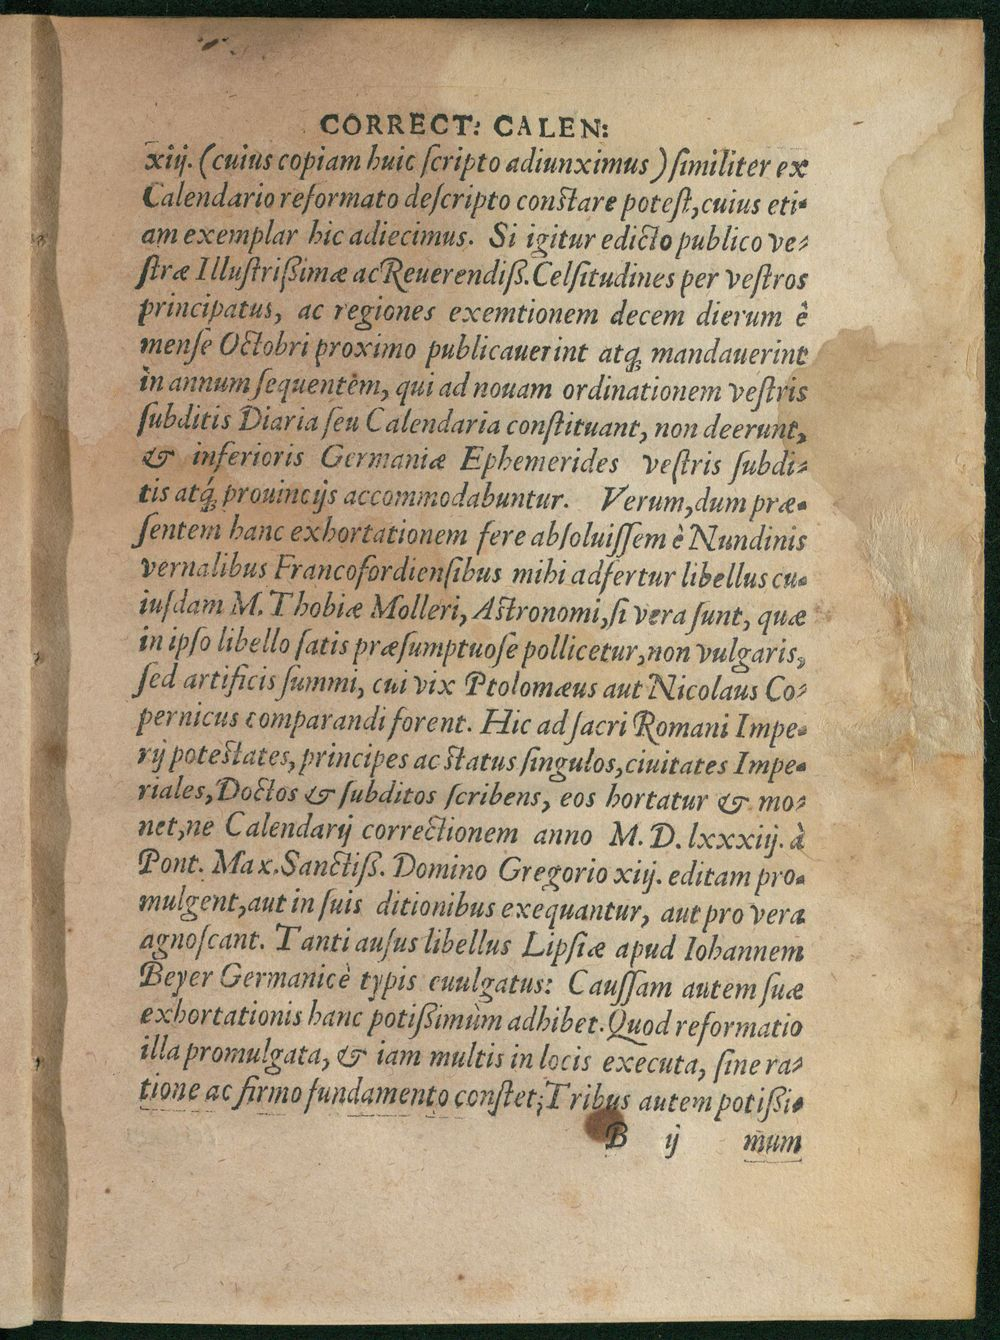 CORRECT: CALEN:
xiij. (cuius copiam huic ſcripto adiunximus) ſimiliter ex
Calendario reformato deſcripto conſtare poteſt, cuius eti-
am exemplar hic adiecimus. Si igitur edicto publico ve-
ſtræ Illuſtriſſimæ ac Reuerendiſſ. Celſitudines per veſtros
principatus, ac regiones exemtionem decem dierum è
menſe Octobri proximo publicauerint atq́; mandauerint
in annum ſequentem, qui ad nouam ordinationem veſtris
ſubditis Diaria ſeu Calendaria conſtituant, non deerunt,
& inferioris Germaniæ Ephemerides veſtris ſubdi-
tis atq́; prouincijs accommodabuntur. Verum, dum præ-
ſentem hanc exhortationem fere abſoluiſſem è Nundinis
vernalibus Francofordienſibus mihi adfertur libellus cu-
iuſdam M. Thobiæ Molleri, Aſtronomi, ſi vera ſunt, quæ
in ipſo libello ſatis præſumptuoſe pollicetur, non vulgaris,
ſed artificis ſummi, cui vix Ptolomæus aut Nicolaus Co-
pernicus comparandi forent. Hic ad ſacri Romani Impe-
rij poteſtates, principes ac ſtatus ſingulos, ciuitates Impe-
riales, Doctos & ſubditos ſcribens, eos hortatur & mo-
net, ne Calendarij correctionem anno M. D. lxxxiij. à
Pont. Max. Sanctiſſ. Domino Gregorio xiij. editam pro-
mulgent, aut in ſuis ditionibus exequantur, aut pro vera
agnoſcant. Tanti auſus libellus Lipſiæ apud Iohannem
Beyer Germanicè typis euulgatus: Cauſſam autem ſuæ
exhortationis hanc potiſſimùm adhibet. Quod reformatio
illa promulgata, & iam multis in locis executa, ſine ra-
tione ac firmo fundamento conſtet; Tribus autem potiſſi-
B ij mum